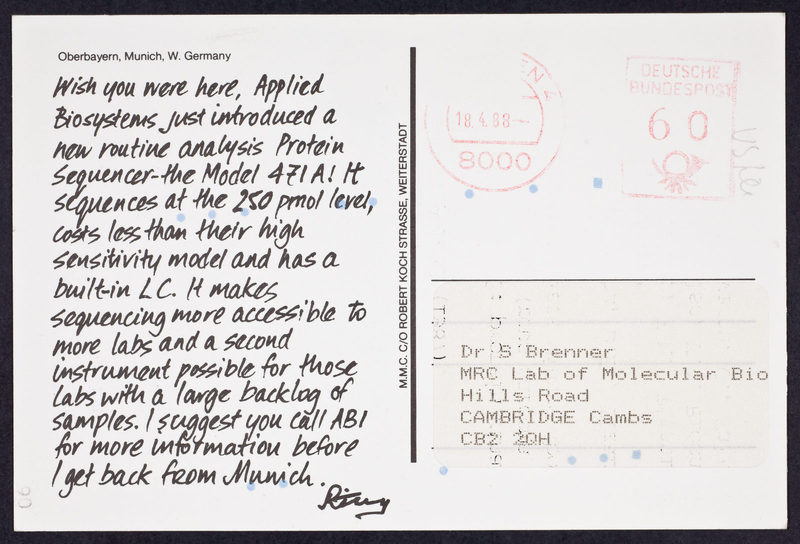 Oberbayern, Munich, W. Germany
Wish you were here, Applied
Biosystems just introduced a
new routine analysis Protein
Sequencer-the Model 471A! It
sequences at the 250 pmol level,
costs less than their high
sensitivity model and has a
built-in LC. It makes
sequencing more accessible to
more labs and a second
instrument possible for those
labs with a large backlog of
samples. I suggest you call ABI
for more information before
I get back from Munich.
M.M.C. C/O ROBERT KOCH STRASSE, WEITERSTADT
18.4.88
8000
DEUTSCHE
BUNDESPOST
60
Dr S Brenner
MRC Lab of Molecular Bio
Hills Road
CAMBRIDGE Cambs
CB2 2QH